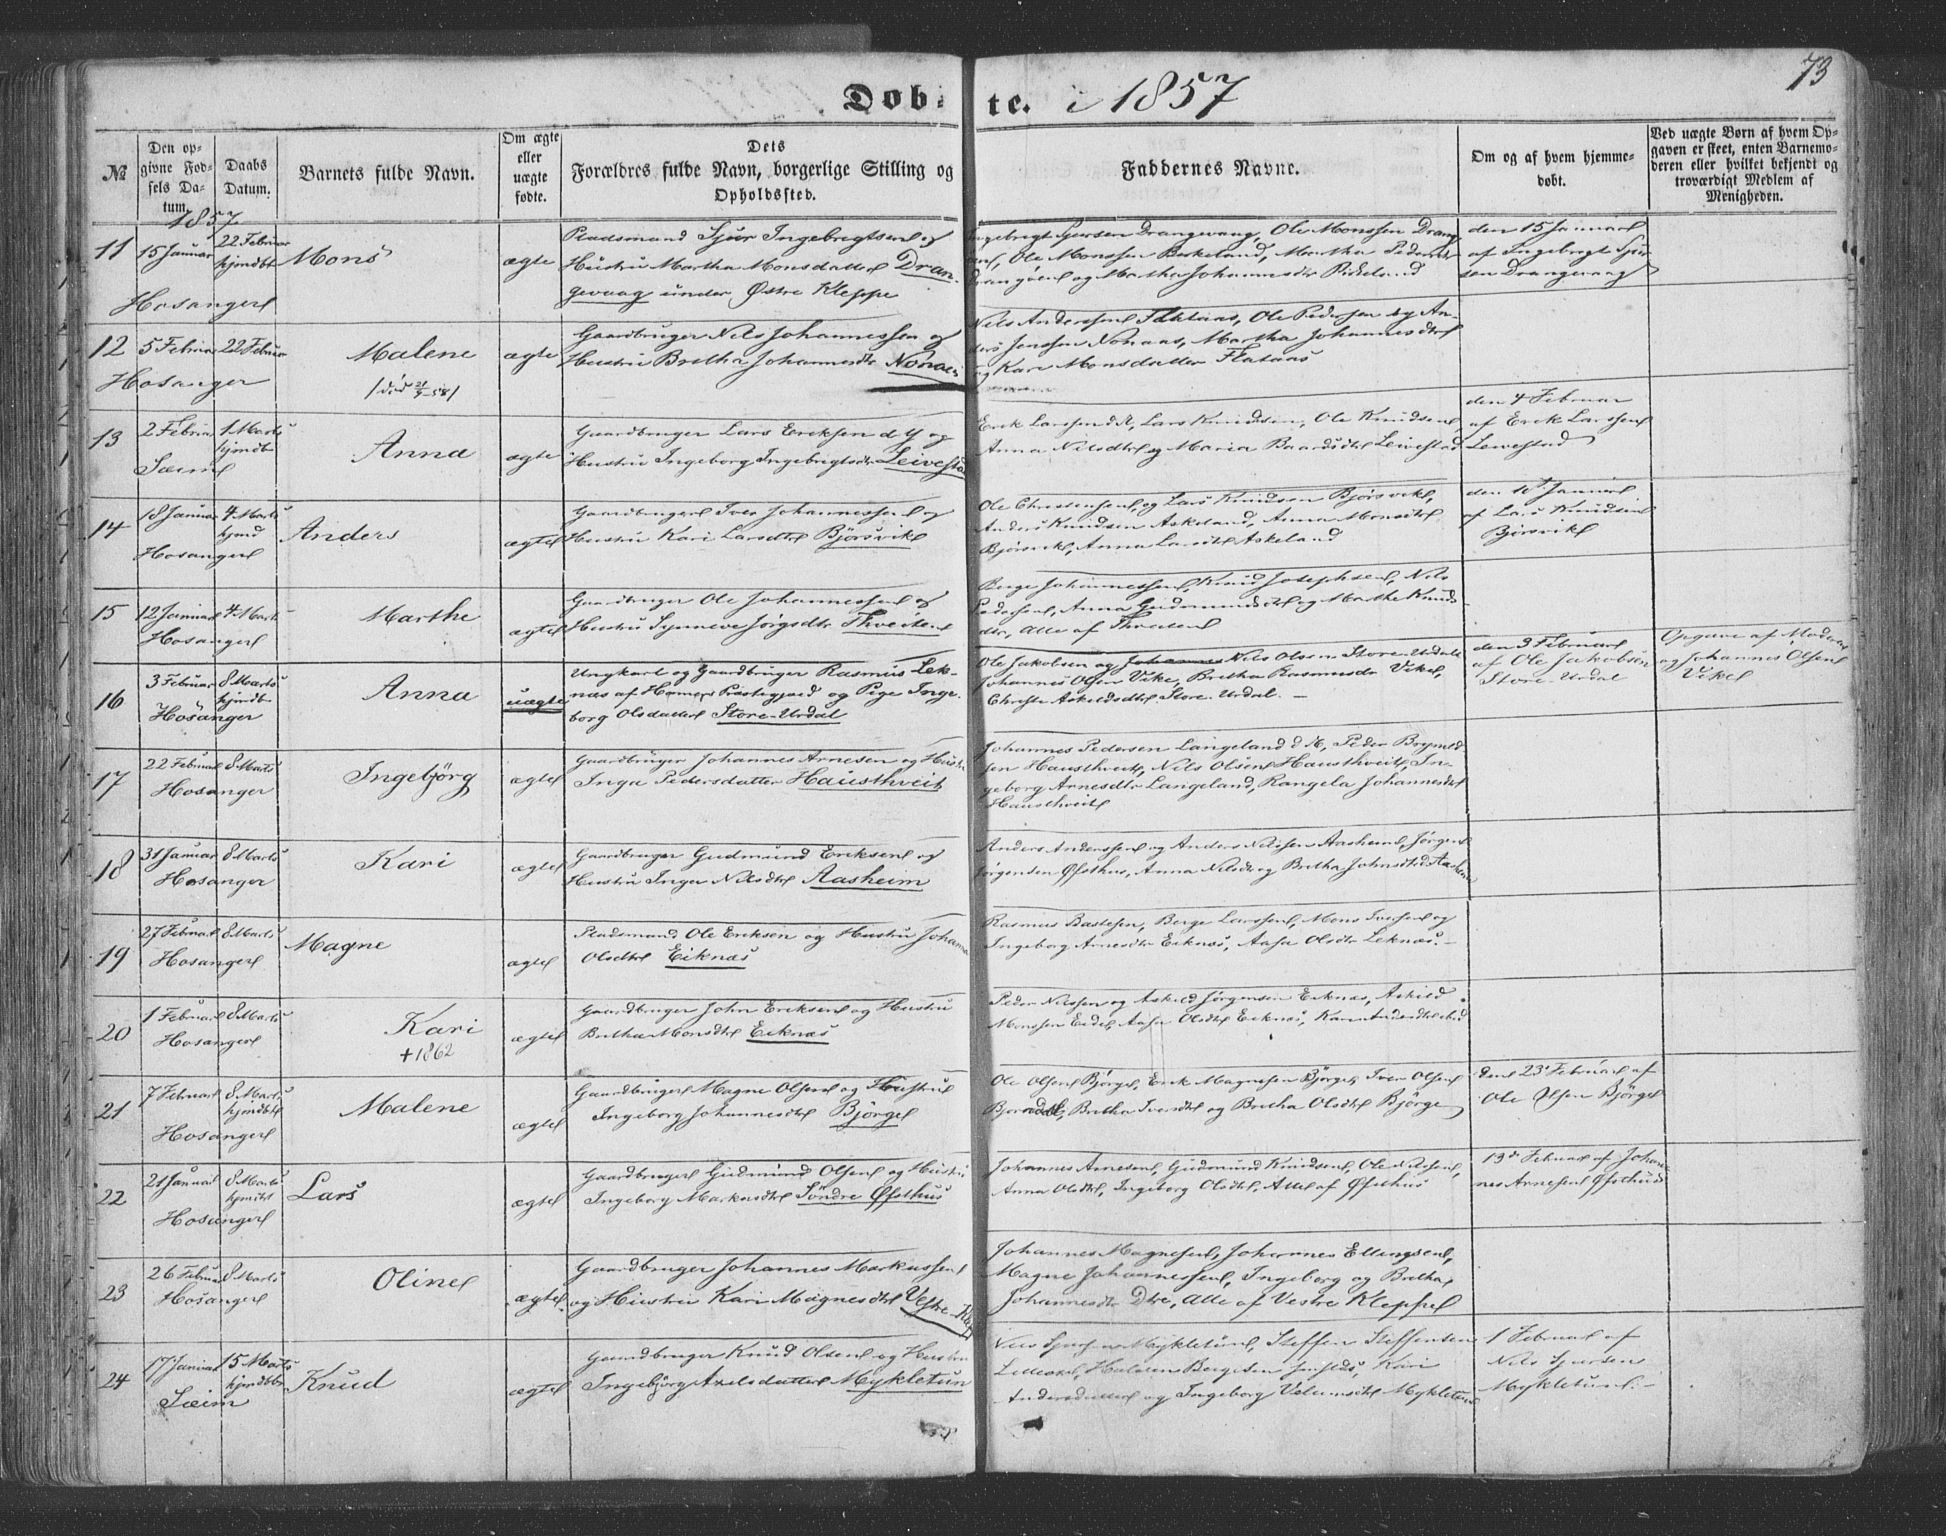 73
Döbte. i 1857
№
Den opgivne Fødsels Datum.
Daabs Datum.
Barnets fulde Navn.
Om ægte eller uægte fødte.
Dets Forældres fulde Navn, borgerlige Stilling og Opholdssted.
Faddernes Navne.
Om og af hvem hjemmedøbt.
Ved uægte Børn af hvem Opgaven er skeet, enten Barnemoderen eller hvilket bekjendt og troværdigt Medlem af Menigheden.
1857
11
15 Januar
22 Februar
hjmdbt
Hosanger
Mons
ægte
Pladsmand Sjur Ingebrigtsen og
Hustru Martha Monsdatter Dran-
gevaag under Østre Kleppe
Ingebrigt Sjursen Drangevaag, Ole Monssen Drang
Ole Monssen Birkeland, Martha Peders
og Martha Johannesdtr Birkeland
den 15 Januar
af Ingebrigt Sjur-
sen Drangevaag
12
5 Februar
22 Februar
Hosanger
Malene
/død 21/4-58/
ægte
Gaardbruger Nils Johannessen og
Hustru Bretha Johannesdtr Nonaas
Nils Anderssen Flataas, Ole Pedersen og An-
ders Jenssen Nonaas, Martha Johannesdtr
og Kari Monsdatter Flataas
13
2 Februar
1 Marts
hjmdb
Sæim
Anna
ægte
Gaardbruger Lars Eriksen d Y og
Hustru Ingeborg Ingebrigtsdtr Leivestad
Erik Larssen d Æ, Lars Knudsen, Ole Knudsen,
Anna Nilsdtr og Maria Baardsdtr Leivestad
den 4 Februar
af Erik Larssen
Leivestad
14
18 Januar
4 Marts
hjmd
Hosanger
Anders
ægte
Gaardbruger Iver Johannessen og
Hustru Kari Larsdtr Bjørsvik
Ole Christensen, og Lars Knudsen Bjørsvik,
Anders Knudsen Askeland, Anna Monsdtr
Bjørsvik, Anna Larsdtr Askeland
af Lars Knudsen
Bjørsvik
15
12 Januar
4 Marts
Hosanger
Marthe
ægte
Gaardbruger Ole Johannessen og
Hustru Synneve Jørgsdtr Thveiten
Berge Johannessen, Knud Josephsen, Nils
Pedersen, Anna Gudmundsdtr og Marthe Knuds
dtr, Alle af Thveiten
16
3 Februar
8 Marts
hjmdb
Hosanger
Anna
uægte
Ungkarl og Gaardbruger Rasmus Lek-
næs af Hammers Præstegjæld og Pige Inge-
borg Olsdatter Store-Urdal
Ole Jakobsen og Johannes Nils Olsen Store-Urdal
Johannes Olsen Vike, Bretha Rasmusdtr Vike,
Christi Askildsdtr Store Urdal. -
den 3 Februar
af Ole Jakobsen
Store-Urdal
Opgave af Moderen
og Johannes Olsen
Vike
17
22 Februar
8 Marts
Hosanger
Ingebjørg
ægte
Gaardbruger Johannes Arnesen og Hustru
Inga Pedersdatter Hausthveit
Johannes Pedersen Langeland d Æ, Peder Brynild
sen Hausthveit, Nils Olsen Hausthveit, In-
geborg Arnesdtr Langeland, Rangela Johannesdtr
Hausthveit
18
31 Januar
8 Marts
Hosanger
Kari
ægte
Gaardbruger Gudmund Eriksen og
Hustru Inger Nilsdtr Aasheim
Anders Anderssen og Anders Nilssen Aasheim, Jørgen
Jørgensen Øfsthus, Anna Nilsdtr og Bretha Johnsdtr Aasheim
19
27 Februar
8 Marts
Hosanger
Magne
ægte
Pladsmand Ole Eriksen og Hustru Johanna
Olsdtr Eiknæs
Rasmus Bastesen, Berge Larssen, Mons Iversen og
Ingeborg Arnesdtr Eiknæs, Aasa Olsdtr Leknæs. -
20
1 Februar
8 Marts
Hosanger
Kari
+1862
ægte
Gaardbruger John Eriksen og Hustru
Bretha Monsdtr Eiknæs
Peder Nilssen og Askild Jørgensen Eiknæs, Askild
Monssen Eide, Aasa Olsdtr Eiknæs, Kari Andersdtr ibid
21
7 Februar
8 Marts
hjmdbt
Hosanger
Malene
ægte
Gaardbruger Magne Olsen og Hustru
Ingeborg Johannesdtr Bjørge
Ole Olsen Bjørge, Erik Magnesen Bjørge, Iver Olsen
Bjørndal, Bretha Iversdtr og Bretha Olsdtr Bjørge
den 23 Februar af
Ole Olsen Bjørge
22
21 Januar
8 Marts
hjmdbt
Hosanger
Lars
ægte
Gaardbruger Gudmund Olsen og Hustru
Ingeborg Markusdtr Søndre Øfsthus
Johannes Arnesen, Gudmund Knudsen, Ole Nilsen,
Anna Olsdtr, Ingeborg Olsdtr, Alle af Øfsthus
13de Februar af Johan-
nes Arnesen Øfsthus
23
26 Februar
8 Marts
Hosanger
Oline
ægte
Gaardbruger Johannes Markussen
og Hustru Kari Magnesdtr Vestre-Klep
Johannes Magnesen, Johannes Ellingsen,
Magne Johannessen, Ingeborg og Bretha
Johannesdtr Dtre, Alle af Vestre Kleppe
24
17 Januar
15 Marts
hjmdbt
Sæim
Knud
ægte
Gaardbruger Knud Olsen og Hustru
Ingebjørg Axelsdatter Mykletun
Nils Sjursen Mykletun, Steffen Steffensen
Kari
Andersdatter og Ingeborg Mykletun
1 Februar af
Nils Sjursen
Mykletun. -